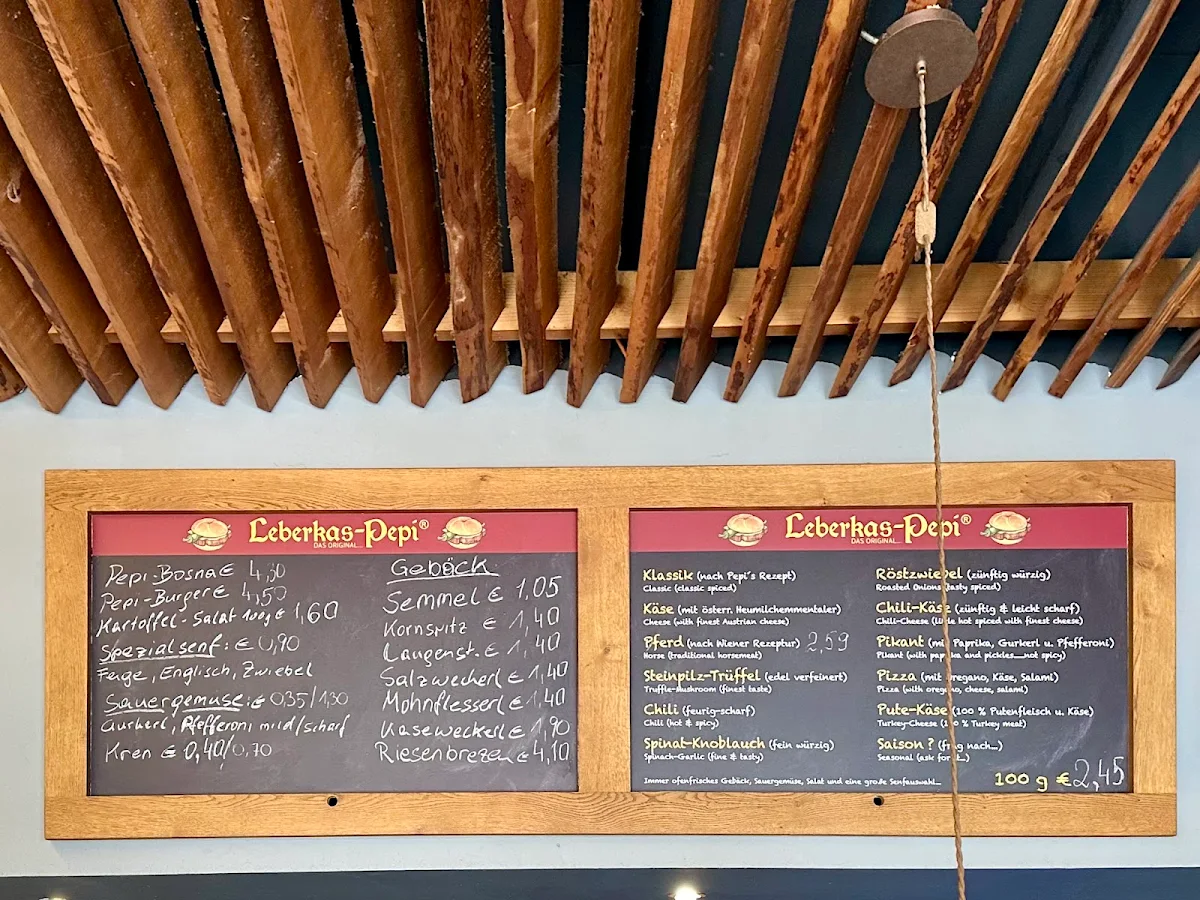 Leberkas-Pepi®
DAS ORIGINAL...
Pepi-Bosna € 4,30
Pepi-Burger € 4,50
Kartoffel-Salat 100g € 1,60
Spezialsenf: € 0,90
Feige, Englisch, Zwiebel
Sauergemüse: € 0,35/1,30
Gurkerl, Pfefferoni mild/scharf
Kren € 0,40/0,70
Gebäck
Semmel € 1,05
Kornspitz € 1,40
Laugenst. € 1,40
Salzweckerl € 1,40
Mohnflesserl € 1,40
Käseweckerl € 1,90
Riesenbrezen € 4,10
Leberkas-Pepi®
DAS ORIGINAL...
Klassik (nach Pepi's Rezept)
Classic (classic spiced)
Käse (mit österr. Heumilchemmentaler)
Cheese (with finest Austrian cheese)
Pferd (nach Wiener Rezeptur) 2,59
Horse (traditional horsemeat)
Steinpilz-Trüffel (edel verfeinert)
Truffle-Mushroom (finest taste)
Chili (feurig-scharf)
Chili (hot & spicy)
Spinat-Knoblauch (fein würzig)
Spinach-Garlic (fine & tasty)
Röstzwiebel (zünftig würzig)
Roasted Onions (tasty spiced)
Chili-Käse (zünftig & leicht scharf)
Chili-Cheese (little hot spiced with finest cheese)
Pikant (mit Paprika, Gurkerl u. Pfefferoni)
Pikant (with paprika and pickles...not spicy)
Pizza (mit Oregano, Käse, Salami)
Pizza (with oregano, cheese, salami)
Pute-Käse (100 % Putenfleisch u. Käse)
Turkey-Cheese (100 % Turkey meat)
Saison ? (frag nach...)
Seasonal (ask for it...)
Immer ofenfrisches Gebäck, Sauergemüse, Salat und eine große Senfauswahl...
100 g € 2,45